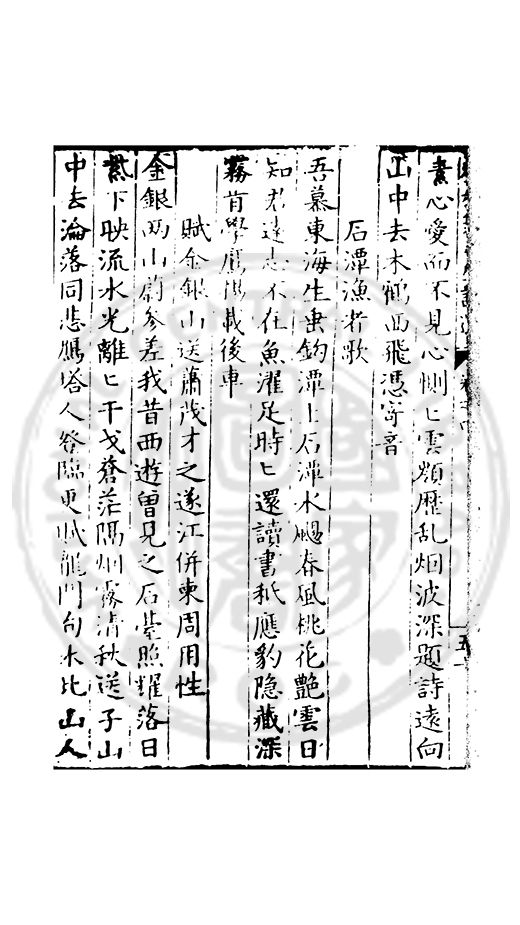 書心愛而不見心惻〻雲頹歷乱烟波深題詩遠向
山中去末鶴西飛憑寄音
石潭漁者歌
吾慕東海生垂釣潭上石潭水颺春風桃花艷雲日
知君遠志不在魚濯足時〻還讀書秖應豹隐藏深
霧肯學鷹揚載後車
賦金銀山送蕭茂才之遂江併柬周用性
金銀兩山蔚參差我昔西遊曾見之石臺照耀落日
紫下映流水光離〻干戈蒼茫隔烟霧清秋送子山
中去淪落同悲鴈塔人登臨更賦龍門句木比山人